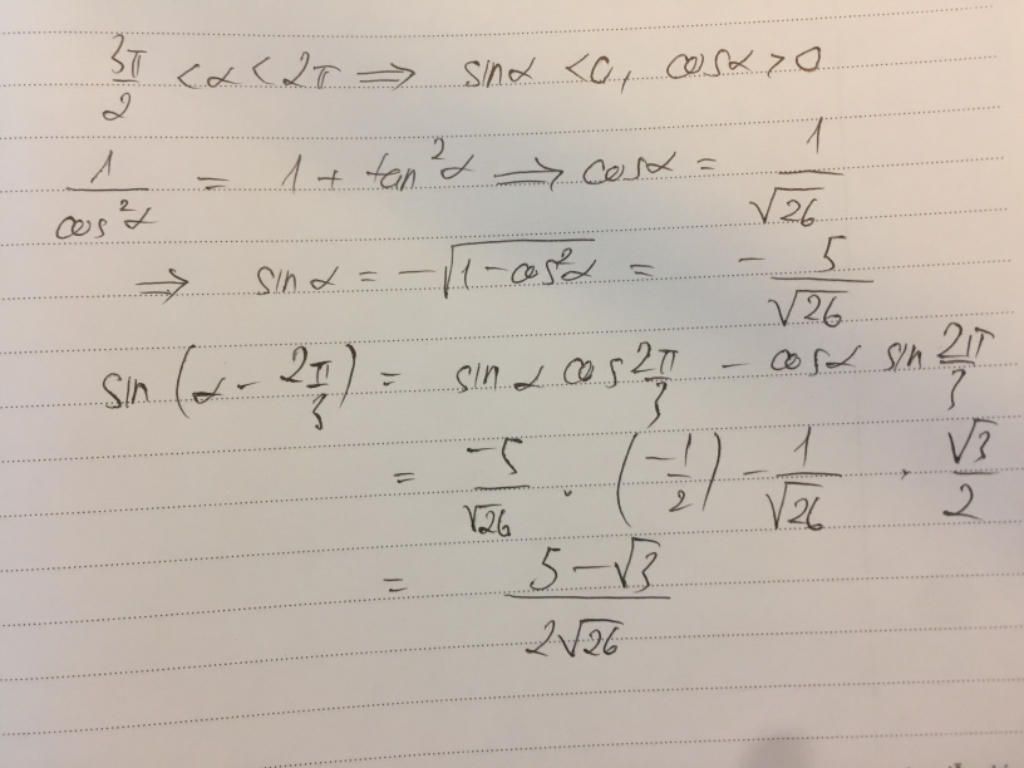 3π/2 < α < 2π ⟹ sinα < 0, cosα > 0
1/cos²α = 1 + tan²α ⟹ cosα = 1/√26
⟹ sinα = -√(1-cos²α) = -5/√26
sin(α - 2π/3) = sinα cos 2π/3 - cosα sin 2π/3
= -5/√26 · (-1/2) - 1/√26 · √3/2
= (5-√3)/(2√26)